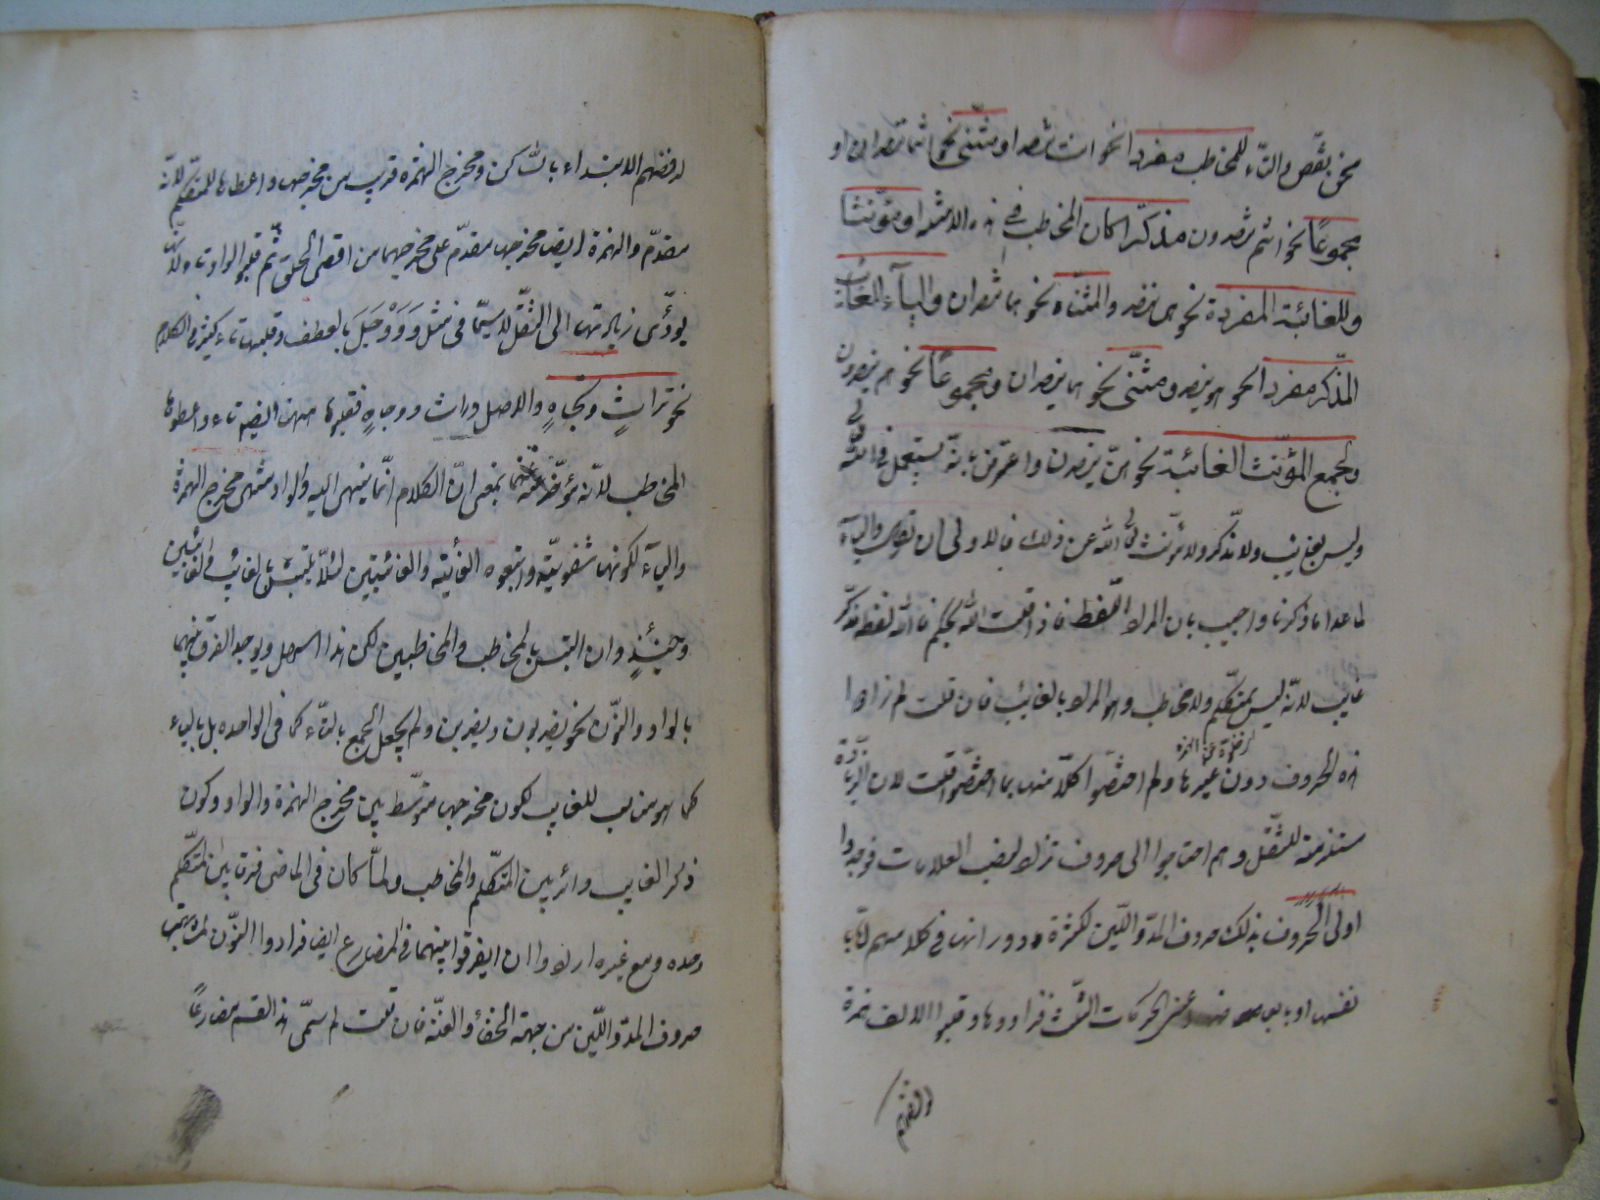 نحن نقص والتاء للمخاطب مفردا نحو انت تنصر او مثنّى نحو انتما تنصران او
مجموعًا نحو انتم تنصرون مذكّرا كان المخاطب في هذه الامثلة او مؤنثا
وللغائبة المفردة نحو هى تنصر والمثناه نحو هما تنصران والياء للغائب
المذّكر مفردا نحو هو ينصر ومثنّى نحو هما ينصران ومجموعًا نحو هم ينصرون
ولجمع المؤنّث الغائبة نحو هنّ ينصرن واعترض بانّه يستعمل في الله تعالى
وليس بغايب ولا مذّكر ولا مؤنّث تعالى الله عن ذلك فالاولى ان يقول والياء
لما عدا ما ذكرنا واجيب بان المراد اللّفظ فاذا قلت الله يحكم فالله لفظ مذكّر
غايب لانّه ليس بمتكّلم ولا مخاطب وهو المراد بالغائب فان قلت لم زادوا
هذه الحروف دون غيرها ولم اختصّوا كلّا منها بما اختصّوا قلت لان الزيادة
مستلزمة للثّقل وهم احتاجوا الى حروف تزاد لنصب العلامات فوجدوا
اولى الحروف بذلك حروف المدّ واللّين لكثرة دورانها في كلامهم امّا
نفسها او بابعاضها اعنى الحركات الثلث فزادوها وقلبوا الالف همزة
لرفضهم الابتداء بالسّاكن ومخرج الهمزة قريب من مخرجها واعطاها للمتكلّم لانّه
مقدّم والهمزة ايضا مخرجها مقدّم على مخرجهما من اقصى الحلق ثّم قلبوا الواو تاء لانّه
يودّى زيادتها الى الثّقل لا سيّما فى مثل وَوَوْجَلَ بالعطف وقلبها تاء كثير فى الكلام
نحو تراثٍ وتجاهٍ والاصل وراث ووجاهٍ فقلبوها ههنا ايضا تاء واعطوها
المخاطب لانّه مؤخّر عنهما بمعنى انّ الكلام انّما ينتهى اليه والواو منتهى مخرج الهمزة
والياء لكونها شفويّة واتبعوه الغائبة والغائبتين لئلّا يلتبس بالغائب والغائبين
وحينئذٍ وان التبس بالمخاطب والمخاطبين لكن هذا اسهل ويوجد الفرق بينهما
بالواو والنّون نحو يضربون ويضربن ولم يجعل الجمع بالتّاء كما فى الواحدة بل بالياء
كما هو مناسب للغايب لكون مخرجها متوسّط بين مخرج الهمزة والواو وكون
ذكر الغايب دائر بين المتكّلم والمخاطب ولمّا كان فى الماضى فرق بين المتكّلم
وحده ومع غيره ارادوا ان يفرقوا بينهما فى المضارع ايضا فزادوا النّون لمشابهتها
حروف المدّ واللّين من جهة الخفاء والغنّة فان قلت لم سمّى هذا القسم مضارعًا